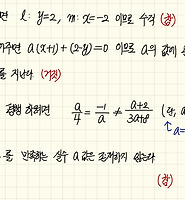 면 l: y=2, m: x=-2 이므로 수직 (참)
하면 a(x+1)+(2-y)=0 이므로 a의 값에 관
를 지난다 (거짓)
평행 하려면 a/4 = -1/a ≠ a+2/3a+8 (단, a
↑ a=
를 만족하는 실수 a값은 존재하지 않는다
(참)